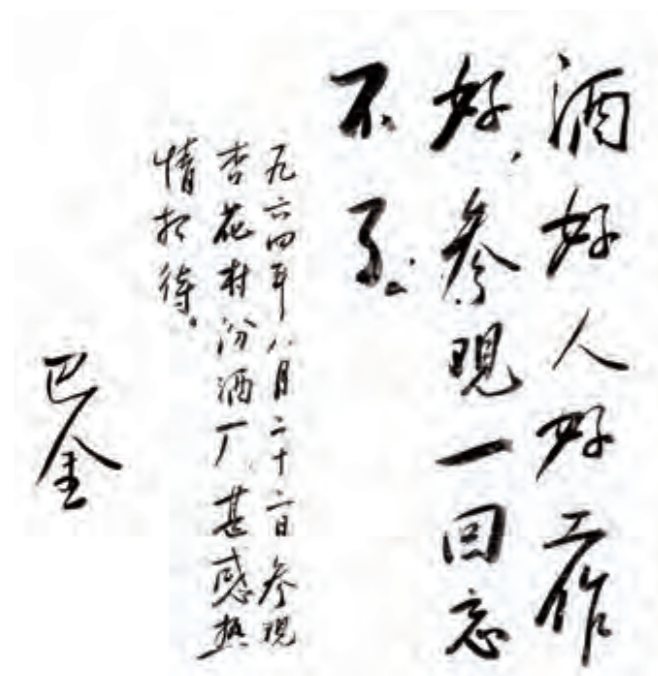 酒好人好工作
好，参观一回忘
不了。
九六四年八月二十六日参观
杏花村汾酒厂，甚感热
情招待。
巴金